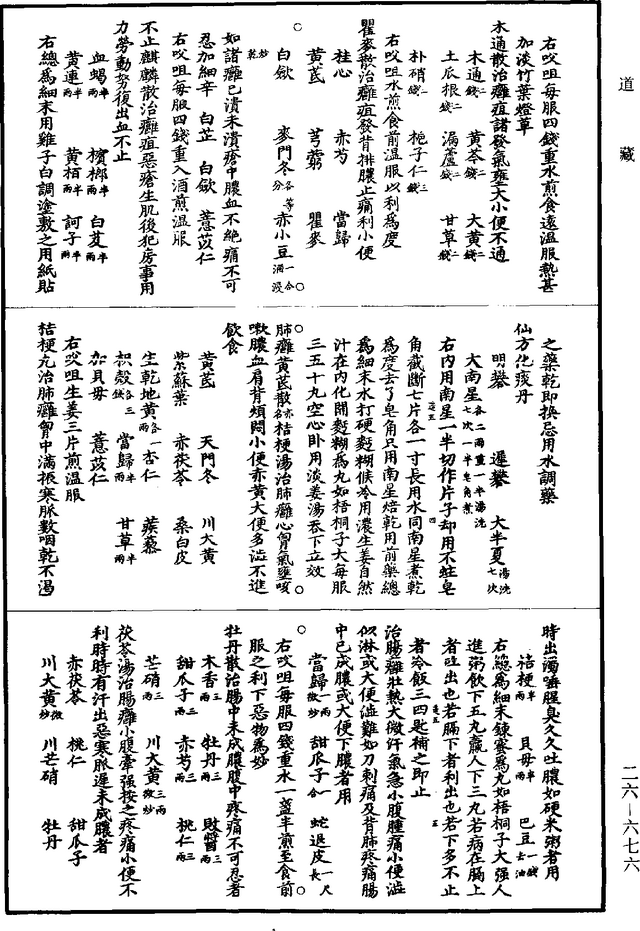 道藏
右㕮咀每服四錢重水煎食遠溫服熱甚
加淡竹葉燈草
木通散治癰疽諸發氣壅大小便不通
木通二錢 黃芩二錢 大黃二錢
土瓜根二錢 漏蘆二錢 甘草二錢
朴硝一錢 梔子仁三錢
右㕮咀水煎食前溫服以利爲度
瞿麥散治癰疽發背排膿止痛利小便
桂心 赤芍 當歸
黃芪 芎藭 瞿麥
白歛 麥門冬各等分 赤小豆一合酒浸炒乾
如諸癰已潰未潰瘡中膿血不絕痛不可
忍加細辛 白芷 白歛 薏苡仁
右㕮咀每服四錢重入酒煎溫服
不止麒麟散治癰疽惡瘡生肌後犯房事用
力勞動努復出血不止
血蝎半兩 檳榔半兩 白芨半兩
黃連半兩 黃栢半兩 訶子半兩
右總爲細末用雞子白調塗敷之用紙貼
之藥乾即換忌用水調藥
仙方化痰丹
明礬 遲礬 大半夏湯洗七次
大南星各二兩重一半湯洗七次一半皂角煮
右內用南星一半切作片子却用不蛀皂
角截斷七片各一寸長用水同南星煮乾
爲度去了皂角只用南星焙乾用前藥總
爲細末水打硬麪糊候冷用濃生姜自然
汁在內化開麪糊爲丸如梧桐子大每服
三五十九空心卧用淡姜湯吞下立效
肺癰黃芪散亦名桔梗湯治肺癰心胷氣壅咳
嗽膿血肩背煩悶小便赤黃大便多澁不進
飲食
黃芪 天門冬 川大黃
紫蘇葉 赤茯苓 桑白皮
生乾地黃各一兩 杏仁 蒺藜
枳殼各三錢 當歸半兩 甘草半兩
加貝母 薏苡仁
右㕮咀生姜三片煎溫服
桔梗丸治肺癰胷中滿振寒脈數咽乾不渴
時出濁唾腥臭久久吐膿如硬米粥者用
桔梗半兩 貝母半兩 巴豆一錢去油
右總爲細末鍊蜜爲丸如梧桐子大强人
進粥飲下五九羸人下三丸若病在膈上
者吐出也若膈下者利出也若下多不止
者冷飯三四匙補之即止
治腸癰壯熱大微汗氣急小腹腫痛小便澁
似淋或大便澁難如刀刺痛及背肺疼痛腸
中已成膿或大便下膿者用
當歸一兩微炒 甜瓜子一合 蛇退皮一尺長
右㕮咀每服四錢重水一盞半煎至食前
服之利下惡物爲妙
牡丹散治腸中未成膿腹中疼痛不可忍者
木香三兩 牡丹三兩 敗醬三兩
甜瓜子三兩 赤芍三兩 桃仁三兩
芒硝三兩 川大黃三兩微炒
茯苓湯治腸癰小腹牽强按之疼痛小便不
利時時有汗出惡寒脈遲未成膿者
赤茯苓 桃仁 甜瓜子
川大黃微炒 川芒硝 牡丹
二六—六七六